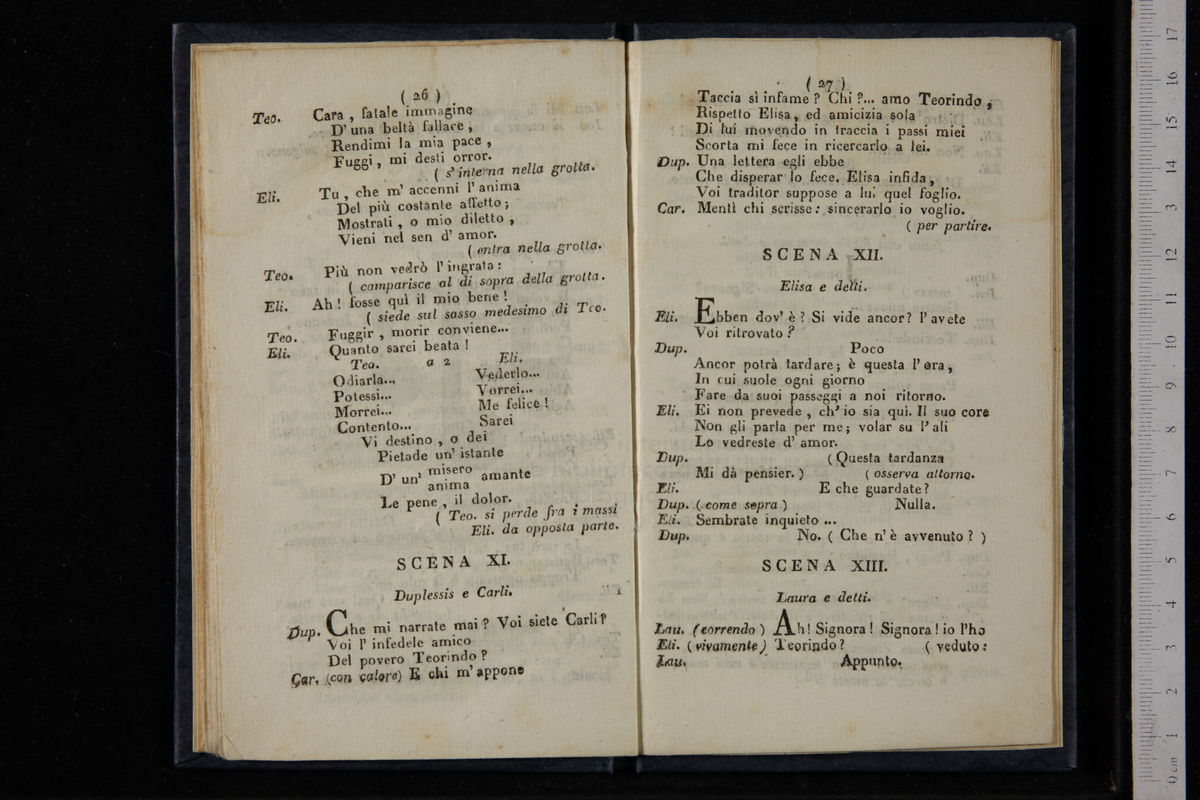 ( 26 )
Teo. Cara , fatale immagine
D' una beltà fallace ,
Rendimi la mia pace ,
Fuggi , mi desti orror.
( s' interna nella grotta.
Eli. Tu , che m' accenni l' anima
Del più costante affetto ;
Mostrati , o mio diletto ,
Vieni nel sen d' amor.
( entra nella grotta.
Teo. Più non vedrò l' ingrata :
( comparisce al di sopra della grotta.
Eli. Ah ! fosse quì il mio bene !
( siede sul sasso medesimo di Teo.
Teo. Fuggir , morir conviene...
Eli. Quanto sarei beata !
Teo. a 2 Eli.
Odiarla... Vederlo...
Potessi... Vorrei...
Morrei... Me felice !
Contento... Sarei
Vi destino , o dei
Pietade un' istante
D' un' misero anima amante
Le pene , il dolor.
( Teo. si perde fra i massi
Eli. da opposta parte.
SCENA XI.
Duplessis e Carli.
Dup. Che mi narrate mai ? Voi siete Carli ?
Voi l' infedele amico
Del povero Teorindo ?
Car. (con calore) E chi m' appone
( 27 )
Taccia sì infame ? Chi ?... amo Teorindo ,
Rispetto Elisa , ed amicizia sola
Di lui movendo in traccia i passi miei
Scorta mi fece in ricercarlo a lei.
Dup. Una lettera egli ebbe
Che disperar lo fece. Elisa infida ,
Voi traditor suppose a lui quel foglio.
Car. Mentì chi scrisse : sincerarlo io voglio.
( per partire.
SCENA XII.
Elisa e detti.
Eli. Ebben dov' è ? Si vide ancor ? l' avete
Voi ritrovato ?
Dup. Poco
Ancor potrà tardare ; è questa l' ora ,
In cui suole ogni giorno
Fare da suoi passeggi a noi ritorno.
Eli. Ei non prevede , ch' io sia quì. Il suo core
Non gli parla per me ; volar su l' ali
Lo vedreste d' amor.
Dup. (Questa tardanza
Mi dà pensier. ) ( osserva attorno.
Eli. E che guardate ?
Dup. ( come sopra ) Nulla.
Eli. Sembrate inquieto ...
Dup. No. ( Che n' è avvenuto ? )
SCENA XIII.
Laura e detti.
Lau. (correndo ) Ah ! Signora ! Signora ! io l'ho
Eli. ( vivamente ) Teorindo ? ( veduto :
Lau. Appunto.
0 cm 1 2 3 4 5 6 7 8 9 10 11 12 13 14 15 16 17